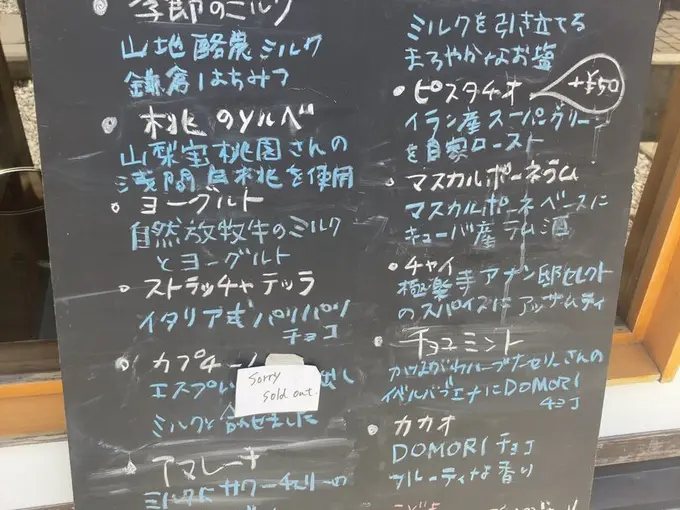 季節のミルク
山地酪農ミルク
鎌倉はちみつ
桃のソルベ
山梨宝桃園さんの
浅間白桃を使用
ヨーグルト
自然放牧牛のミルク
とヨーグルト
ストラッチャテッラ
イタリア式パリパリ
チョコ
カプチーノ
エスプレ 出し
Sorry
sold out.
ミルクに合わせました
アマレーナ
ミルクにサワーチェリーの
ミルクを引き立てる
まろやかなお塩
ピスタチオ
+¥50
イラン産スーパーグリーン
を自家ロースト
マスカルポーネラム
マスカルポーネベースに
キューバ産ラム酒
チャイ
極楽寺アナン邸セレクト
のスパイスにアッサムティ
チョコミント
ハーブナーセリーさんの
イベルバブエナにDOMORI
チョコ
カカオ
DOMORIチョコ
フルーティな香り